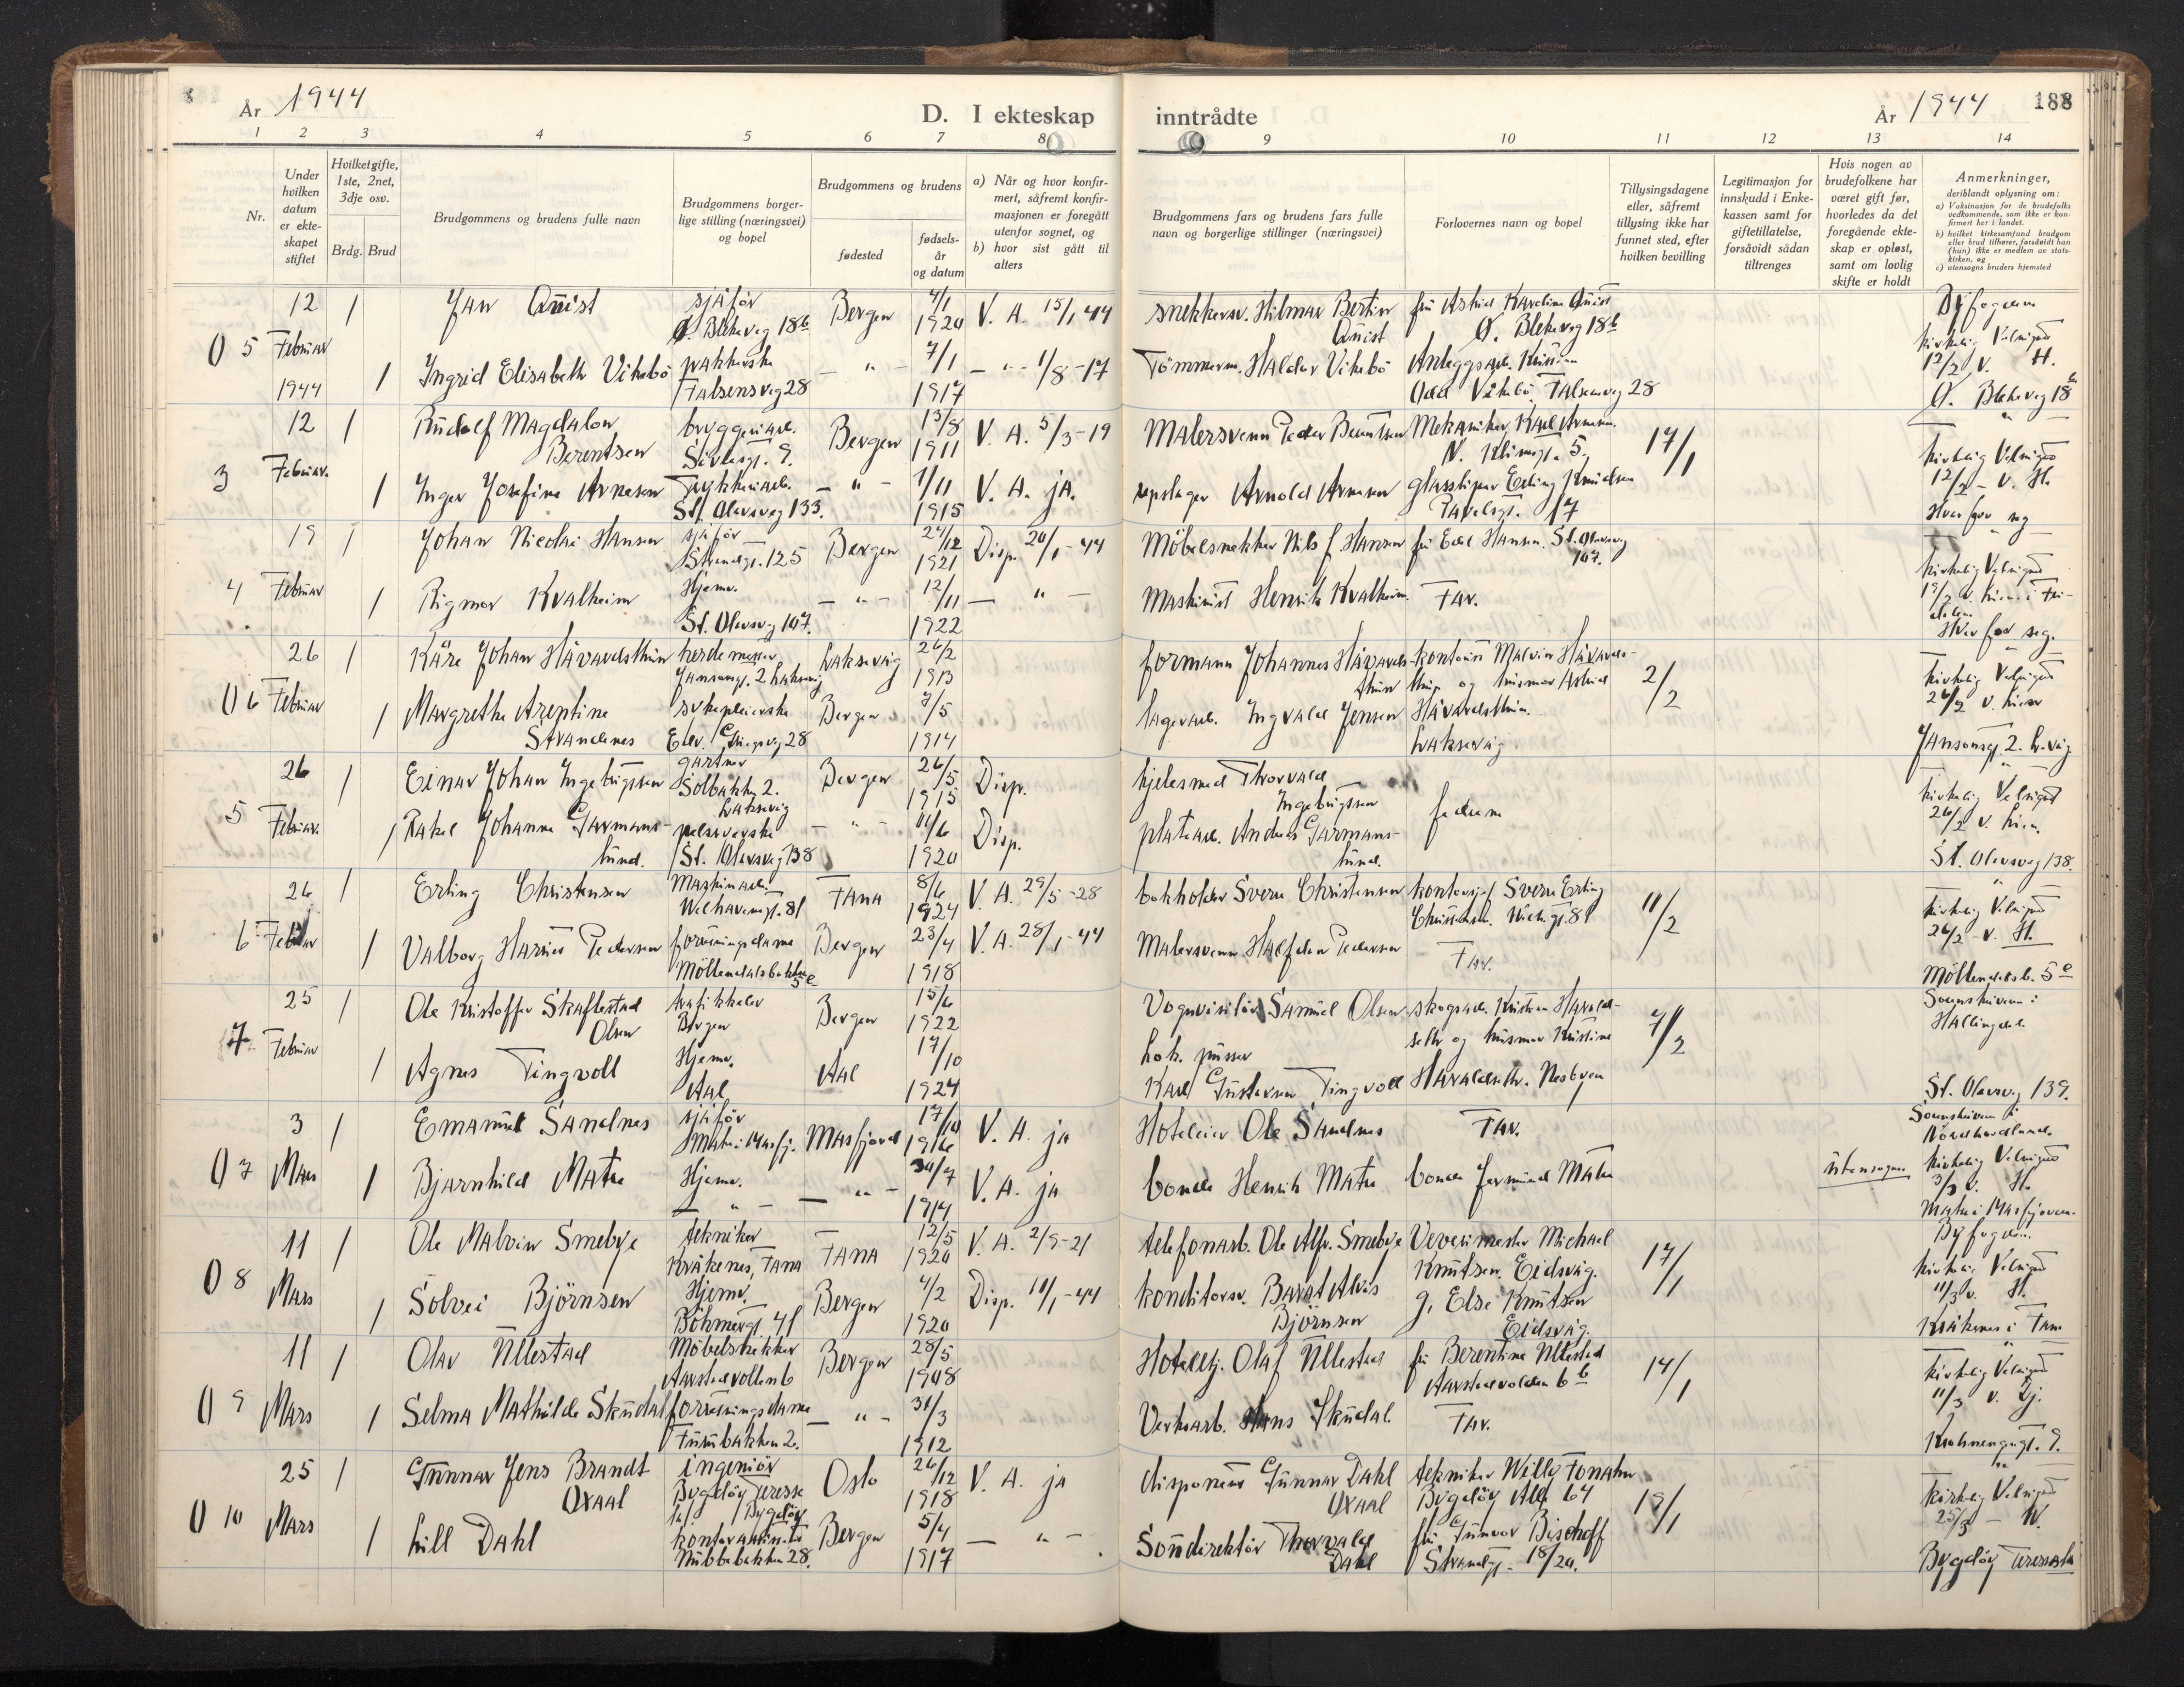 År 1944
D. I ekteskap
inntrådte
År 1944
188
1 2 3 4 5 6 7 8 9 10 11 12 13 14
Nr.
Under hvilken datum er ekteskapet stiftet
Hvilket gifte, 1ste, 2net, 3dje osv.
Brdg. Brud
Brudgommens og brudens fulle navn
Brudgommens borgerlige stilling (næringsvei) og bopel
Brudgommens og brudens
fødested
fødselsår og datum
a) Når og hvor konfirmert, såfremt konfirmasjonen er foregått utenfor sognet, og
b) hvor sist gått til alters
Brudgommens fars og brudens fars fulle navn og borgerlige stillinger (næringsvei)
Forlovernes navn og bopel
Tillysingsdagene eller, såfremt tillysing ikke har funnet sted, efter hvilken bevilling
Legitimasjon for innskudd i Enkekassen samt for giftetillatelse, forsåvidt sådan tiltrenges
Hvis nogen av brudefolkene har været gift før, hvorledes da det foregående ekteskap er opløst, samt om lovlig skifte er holdt
Anmerkninger,
deriblandt oplysning om:
a) Vaksinasjon for de brudefolks vedkommende, som ikke er konfirmert her i landet.
b) hvilket kirkesamfund brudgom eller brud tilhører, forsåvidt han (hun) ikke er medlem av statskirken, og
c) utensogns bruders hjemsted
0 5 12 Februar 1944 1 Jan Quist sjåfør Ø. Blekeveg 18b Bergen 4/1 1920 V. A. 15/1 44 snekkersv. Hilmar Bertin Quist fru Astrid Karoline Quist Ø. Blekeveg 18b Byfogden
1 Ingrid Elisabeth Vikebö pakkerske Falsensveg 28 - " - 7/1 1917 - " - 1/8-17 Tömmerm. Haldor Vikebö Odd Vikebö Falsensveg 28 kirkelig Velsignet 12/2 v. H. Ø. Blekeveg 18b
3 12 Februar. 1 Rudolf Magdalon Berentsen bryggeriarb. Bergen 13/8 1911 V. A. 5/3-19 Malersvenn Peder Berentsen Mekaniker Karl Arnesen 17/1 kirkelig Velsignet
1 Inger Josefine Arnesen St. Olavsveg 133. - " - 1/11 1915 V. A. ja. repslager Arnold Arnesen glassliper Erling Knudsen 12/2 - v. H. Hver for seg
4 19 Februar 1 Johan Nicolai Hansen sjåfør Strandgt. 125 Bergen 24/12 1921 Disp. 20/1-44 Möbelsnekker Nils J. Hansen fru Edel Hansen. St. Olavsveg 107. kirkelig Velsignet
1 Rigmor Kvalheim Hjemv. St. Olavsveg 107. - " - 12/11 1922 - " - Maskinist Henrik Kvalheim. Far. Hver for seg.
0 6 26 Februar 1 Kåre Johan Håvardsthun Jansonsgt. 2 Laksevåg Laksevåg 26/2 1913 formann Johannes Håvardsthun kontorist Malvin Håvardsthun og husmor Astrid Håvardsthun. Laksevåg 2/2 kirkelig Velsignet
1 Margrethe Arentine Strandenes sykepleierske Edv. Griegsvg 28 Bergen 7/5 1914 lagerarb. Ingvald Jensen 26/2 v. Jansonsgt 2. L.våg
5 26 Februar. 1 Einar Johan Ingebrigtsen gartner Solbakken 2. Laksevåg Bergen 26/5 1915 Disp. kjelesmed Thorvald Ingebrigtsen fedrene kirkelig Velsignet
1 Rakel Johanne Garmannslund. pelssyerske St. Olavsveg 138 - " - 1920 Disp. platearb. Anders Garmannslund. 26/2 v. St. Olavsveg 138.
6 26 Februar 1 Erling Christensen Maskinarb. Welhavensgt. 81 Fana 8/6 1924 V. A. 29/5-28 bokholder Sverre Christensen kontorsjef Sverre Erling Christensen. 11/2 kirkelig Velsignet
1 Valborg Harriet Pedersen forretningsdame Möllendalsbakken 5c Bergen 23/4 1918 V. A. 28/1-44 Malersvenn Halfdan Pedersen Far. 26/2 - v. H. Möllendalsb. 5c
7 25 Februar 1 Ole Kristoffer Skaftestad Olsen trafikkelev Bergen Bergen 15/6 1922 Vognvisitör Samuel Olsen skogsarb. Kristian Haraldseth og husmor Kristine Haraldseth. Nesbyen 7/2 Sorenskriveren i Hallingdal.
1 Agnes Tingvoll Hjemv. Aal Aal 17/10 1924 Lok. pusser Karl Gustavsen Tingvoll St. Olavsveg 139.
0 7 3 Mars 1 Emanuel Sandnes sjåfør Matre i Masfj. Masfjord 17/10 1916 V. A. ja Hoteleier Ole Sandnes Far. Sorenskriveren i Nordhordland.
1 Bjarnhild Matre Hjemv. - " - - " - 30/7 1914 V. A. ja bonde Henrik Matre bonde Jermund Matre utensogns kirkelig Velsignet 3/3 v. H. Matre i Masfjorden.
0 8 11 Mars 1 Ole Malvin Smebye tekniker Kråkenes, Fana Fana 12/5 1920 V. A. 2/9-21 telefonarb. Ole Alfr. Smebye Vevermester Michael Knutsen. Eidsvåg. 17/1 Byfogden.
1 Solvei Björnsen Hjemv. Böhmergt 41 Bergen 4/2 1920 Disp. 11/1-44 konditorsv. Barat Alvis Björnsen g. Else Knutsen Eidsvåg. kirkelig Velsignet 11/3 v. H. Kråkenes i Fana
0 9 11 Mars 1 Olav Ullestad Möbelsnekker Aarstadvollen 6 Bergen 28/5 1908 Hotellej. Olaf Ullestad fru Berentine Ullestad Aarstadvolden 6b 14/1 kirkelig Velsignet
1 Selma Mathilde Skudal forretningsdame Furubakken 2. - " - 31/3 1912 Verksarb. Hans Skudal. Far. 11/3 v.
0 10 25 Mars 1 Gunnar Jens Brandt Oxaal ingeniör Bygdöy Terrasse Bygdöy Oslo 26/12 1918 V. A. ja disponent Gunnar Dahl Oxaal tekniker Willy Fonahn Bygdöy Allé 64 19/1 kirkelig Velsignet
1 Lill Dahl Nubbebakken 28. Bergen 5/4 1917 - " - Sondirektör Thorvald Dahl fru Gunvor Bischoff Strandgt. 18/20. 25/3 - Bygdöy Terrasse